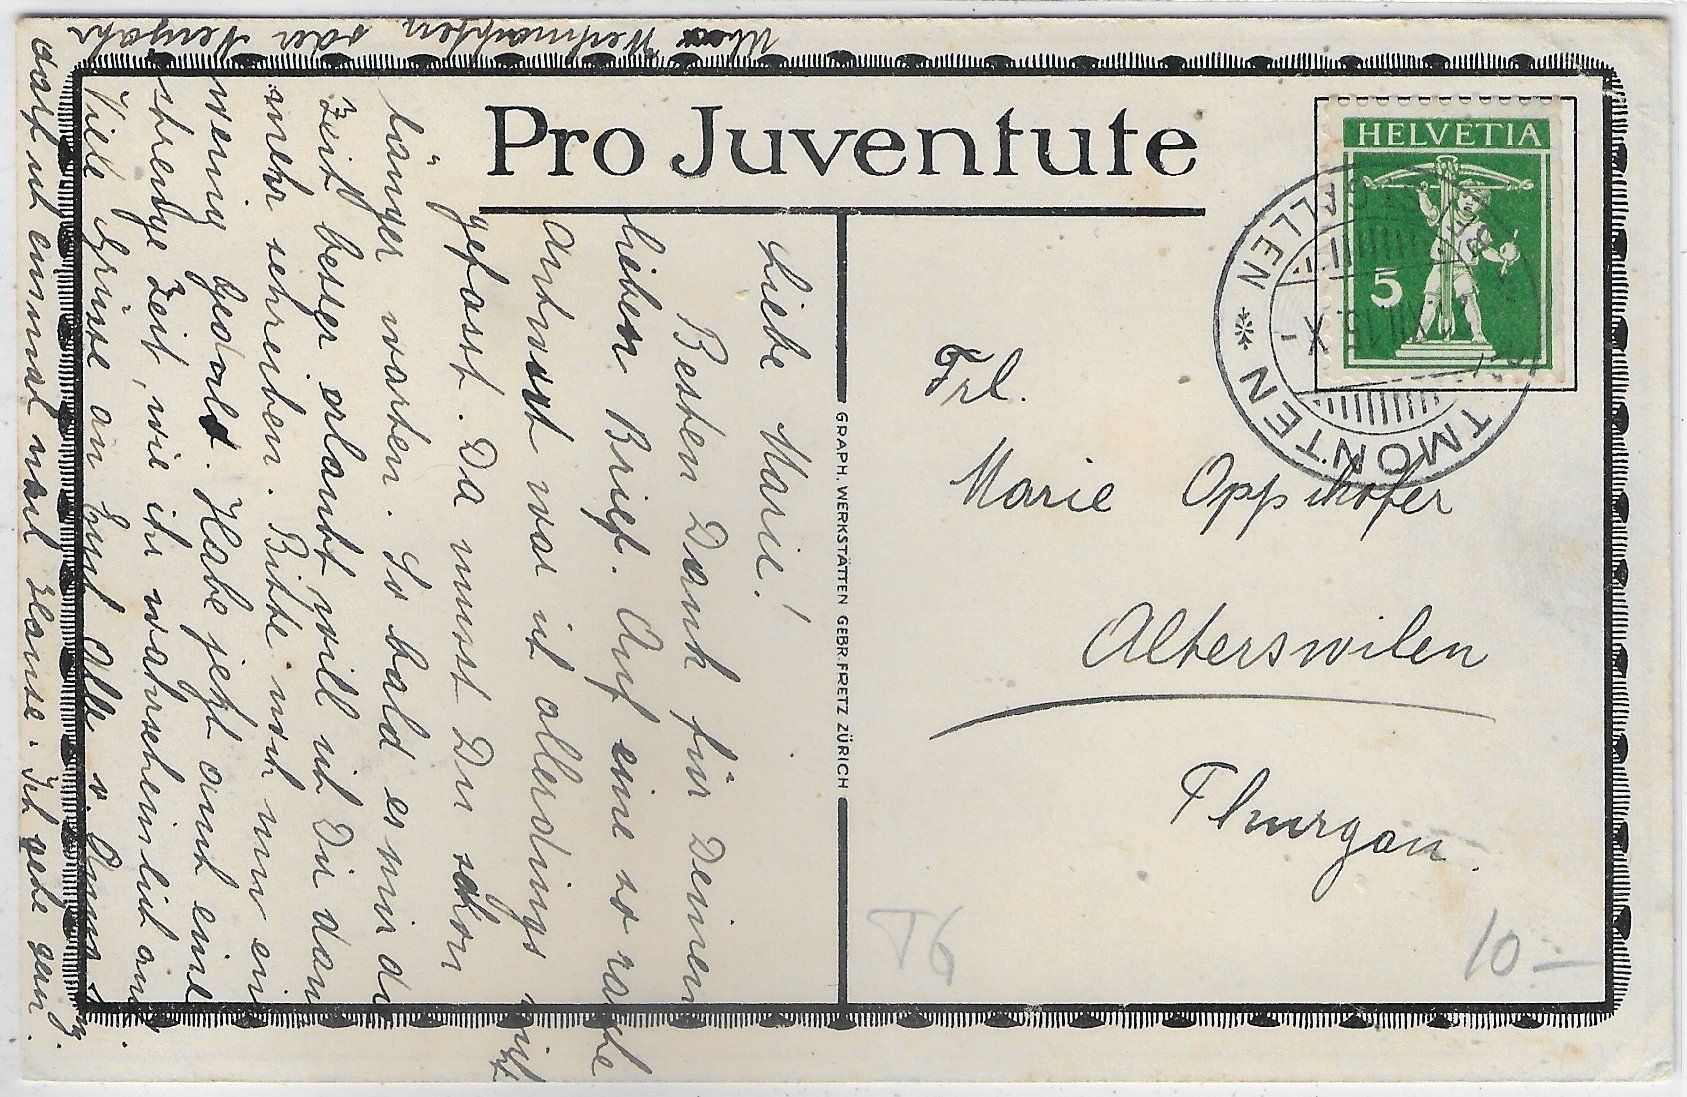 Pro Juventute
HELVETIA
5
ST. GALLEN
TMONTEN
Liebe Marie!
Besten Dank für Deinen
lieben Brief. Auf eine so rasche
Antwort war ich allerdings nicht
gefasst. Da musst Du schon
länger warten. So bald es mir di
Zeit besser erlaubt will ich Dir dan
mehr schreiben. Bitte noch nur ein
wenig Gedold. Habe jetzt auch eine
strenge Zeit, wie ihr wahrscheinlich auch
Viele Grüsse an Euch Alle v. Anna
Über Weihnachten oder Neujahr
darf ich einmal nach Hause. Ich gehe gern.
GRAPH. WERKSTÄTTEN GEBR. FRETZ ZÜRICH
Frl.
Marie Oppikofer
Alterswilen
Thurgau.
T6
10 –